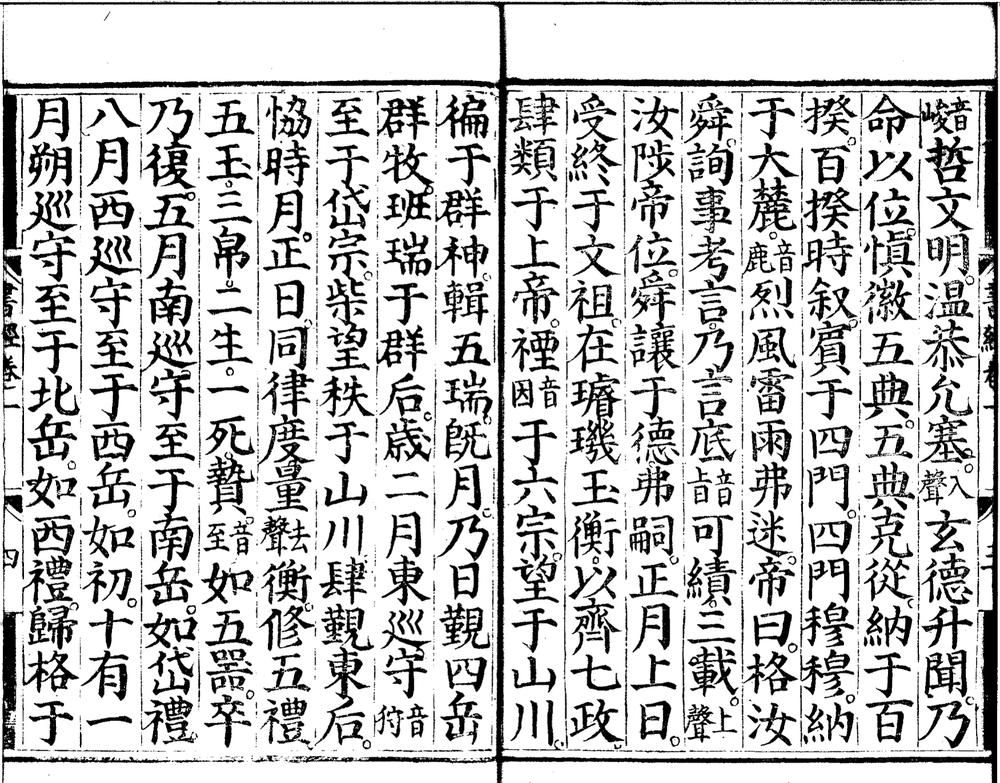 音峻哲文明。温恭允塞。入聲玄德升聞。乃
命以位。慎徽五典。五典克從。納于百
揆。百揆時叙。賓于四門。四門穆穆。納
于大麓。音鹿烈風雷雨弗迷。帝曰。格汝
舜。詢事考言。乃言底音旨可績。三載。上聲
汝陟帝位。舜讓于德。弗嗣。正月上日。
受終于文祖。在璿璣玉衡。以齊七政。
肆類于上帝。禋音因于六宗。望于山川。
徧于群神。輯五瑞。旣月。乃日覲四岳
群牧。班瑞于群后。歲二月東巡守音狩
至于岱宗。柴。望秩于山川。肆覲東后。
恊時月。正日。同律度量去聲衡。修五禮
五玉。三帛。二生。一死。贄。音至如五器。卒
乃復。五月南巡守至于南岳。如岱禮。
八月西巡守至于西岳。如初。十有一
月朔巡守至于北岳。如西禮。歸格于
書經卷一 四